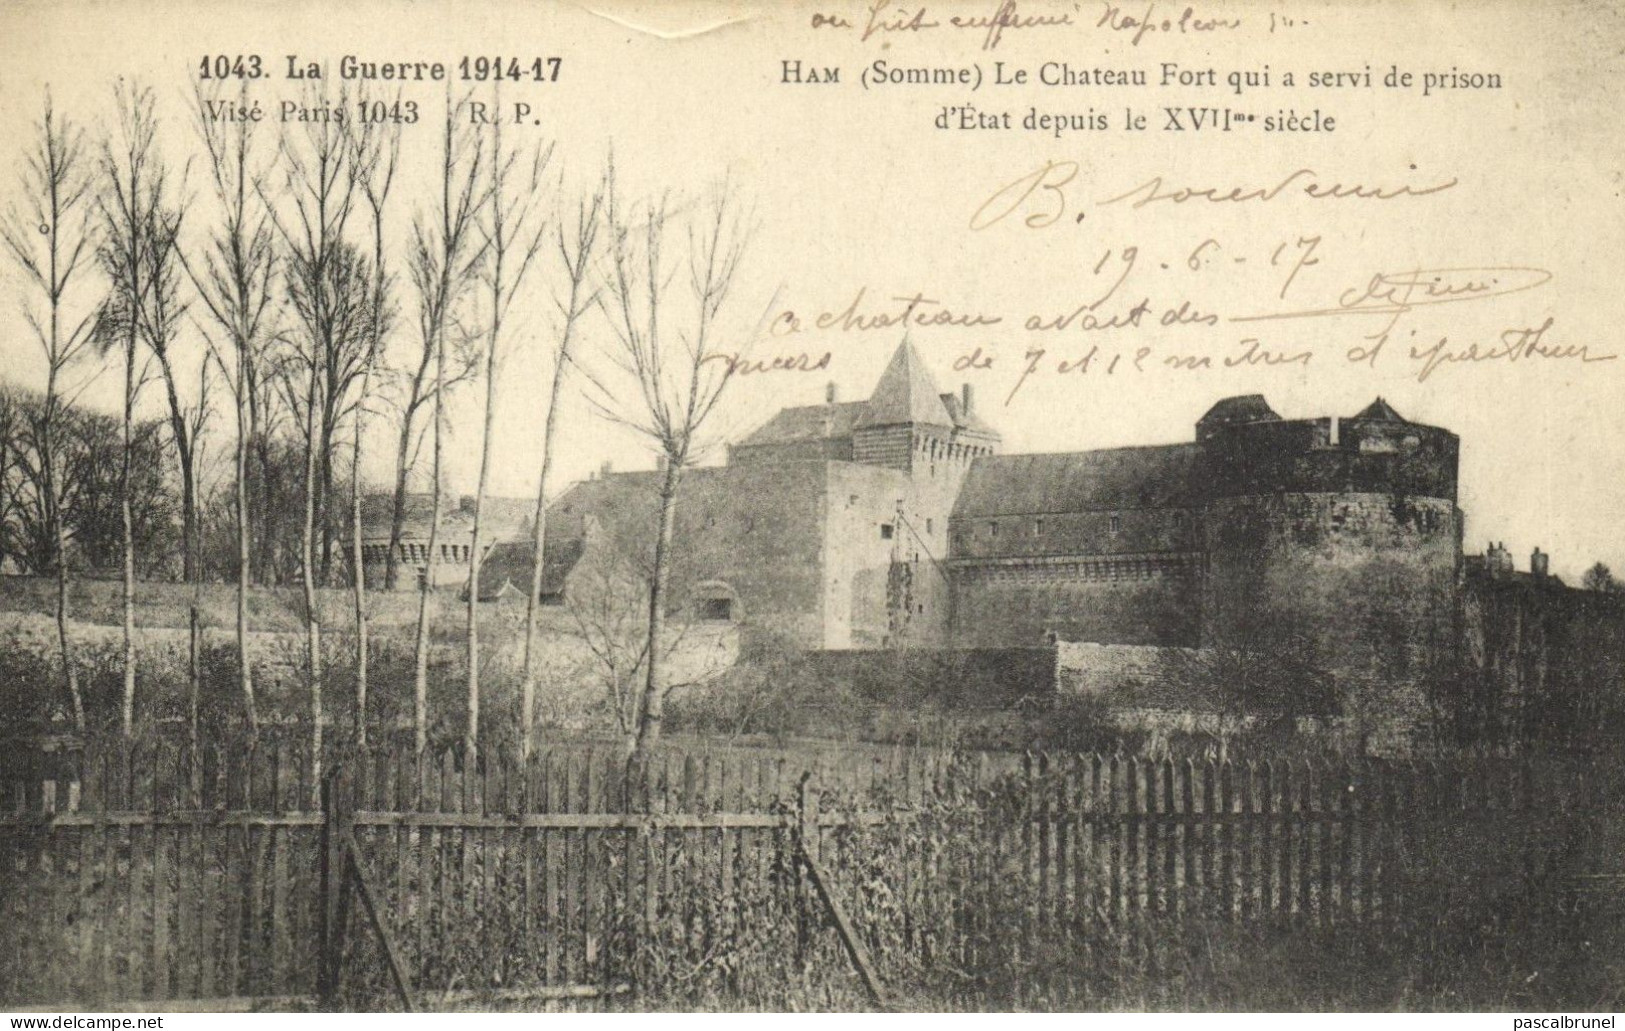 ou fut enfermé Napoleon III.
1043. La Guerre 1914-17
Visé Paris 1043 R. P.
HAM (Somme) Le Chateau Fort qui a servi de prison
d'État depuis le XVIIme siècle
B. souvenir
19-6-17
ce chateau avait des
murs de 7 et 12 mètres d'
www.delcampe.net
pascalbrunel